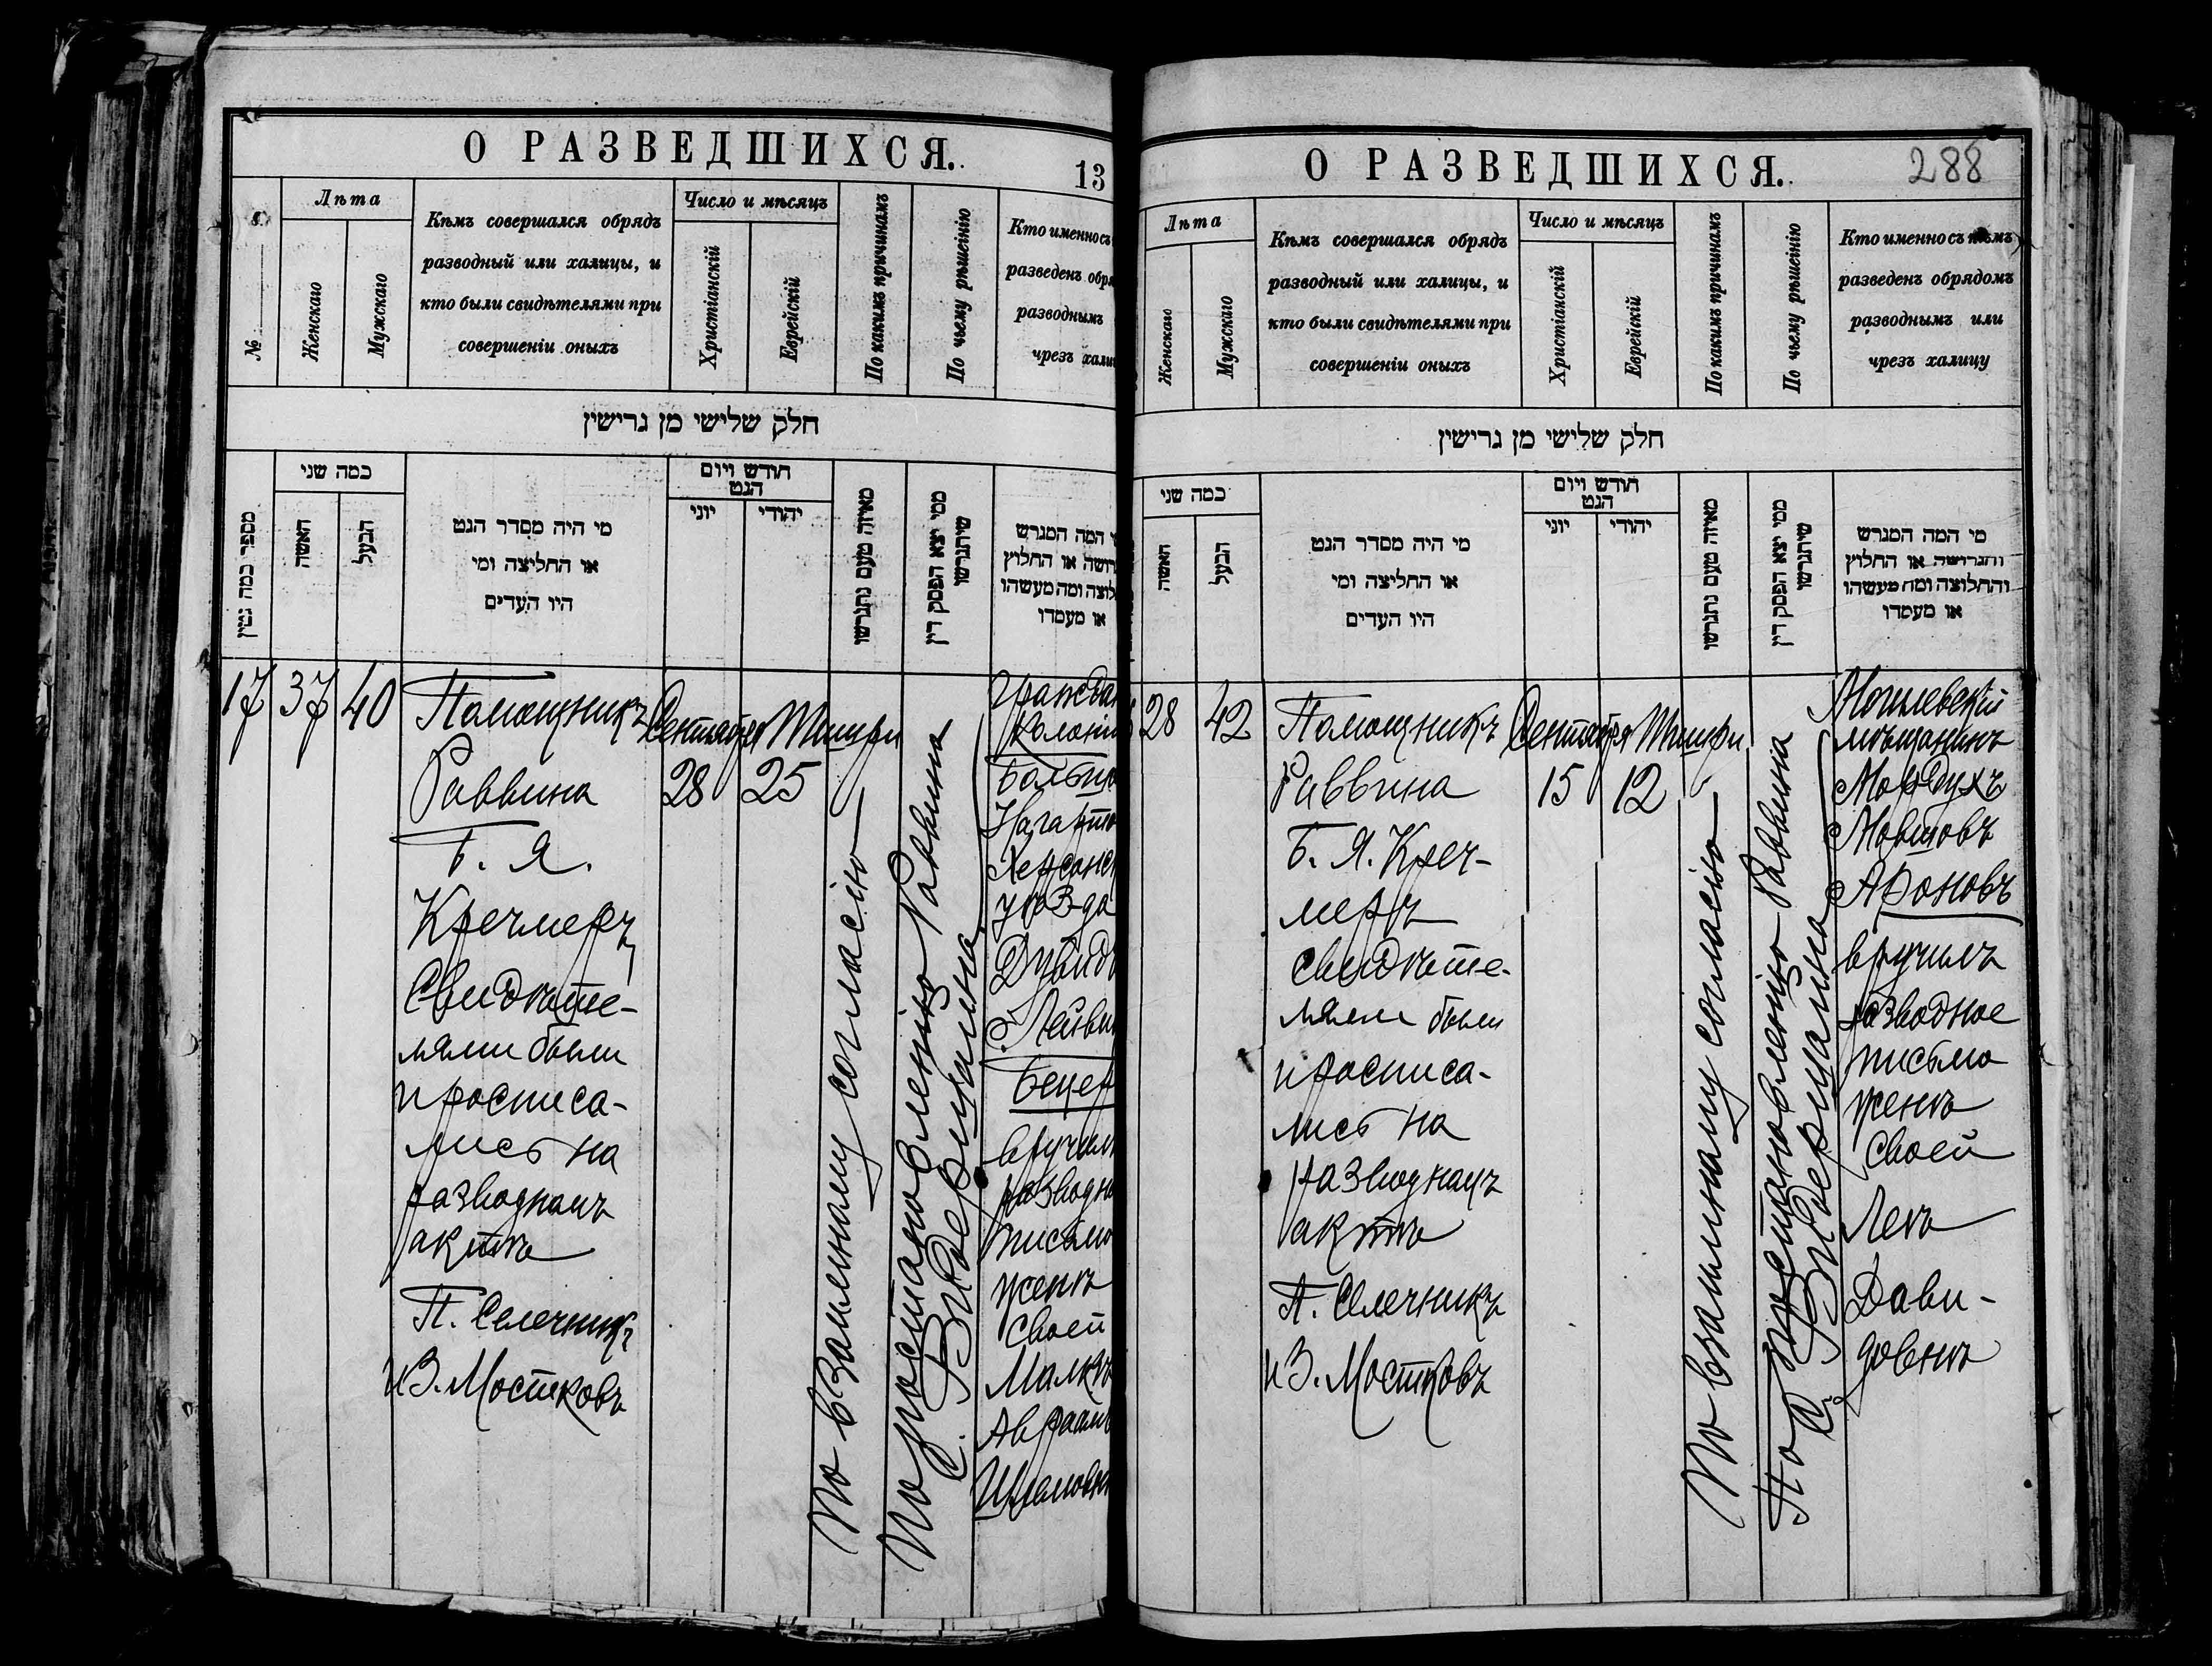 О РАЗВЕДШИХСЯ.
13
№
Лѣта
Женскаго
Мужскаго
Кѣмъ совершался обрядъ
разводный или халицы, и
кто были свидѣтелями при
совершеніи оныхъ
Число и мѣсяцъ
Христіанскій
Еврейскій
По какимъ причинамъ
По чьему рѣшенію
Кто именно съ
разведенъ обря
разводнымъ
чрезъ хали
חלק שלישי מן גרישין
מספר כמה גטין
כמה שני
האשה
הבעל
מי היה מסדר הגט
או החליצה ומי
היו העדים
חודש ויום
הגט
יוני
יהודי
מאיזה טעם נתגרשו
ממי יצא הפסק דין
שיתגרשו
המה המגרש
רושה או החלוץ
לוצה ומה מעשהו
או מעמדו
17
37
40
Помощникъ
Раввина
Б. Я.
Кречмеръ,
Свидѣте-
лями были
и росписа-
лись на
разводномъ
актѣ
П. Селечникъ
и З. Мостковъ
Сентября
28
Тишри
25
По взаимному согласію
По постановленію Раввина
С.
Граждан
колоніи
Нагарто
Херсонск
уѣзда
Дувидъ
Лейви
Бецер
вручилъ
разводно
письмо
женѣ
своей
Малкѣ
Авраам
О РАЗВЕДШИХСЯ.
288
Лѣта
Женскаго
Мужскаго
Кѣмъ совершался обрядъ
разводный или халицы, и
кто были свидѣтелями при
совершеніи оныхъ
Число и мѣсяцъ
Христіанскій
Еврейскій
По какимъ причинамъ
По чьему рѣшенію
Кто именно съ кѣмъ
разведенъ обрядомъ
разводнымъ или
чрезъ халицу
חלק שלישי מן גרישין
כמה שני
האשה
הבעל
מי היה מסדר הגט
או החליצה ומי
היו העדים
חודש ויום
הגט
יוני
יהודי
מאיזה טעם נתגרשו
ממי יצא הפסק דין
שיתגרשו
מי המה המגרש
והגרושה או החלוץ
והחלוצה ומה מעשהו
או מעמדו
28
42
Помощникъ
Раввина
Б. Я. Креч-
меръ
Свидѣте-
лями были
и росписа-
лись на
разводномъ
актѣ
П. Селечникъ
и З. Мостковъ
Сентября
15
Тишри
12
По взаимному согласію
По постановленію Раввина
С.
Могилевскій
мѣщанинъ
Мордухъ
Мовшовъ
Ароновъ
вручилъ
разводное
письмо
женѣ
своей
Леѣ
Дави-
довнѣ